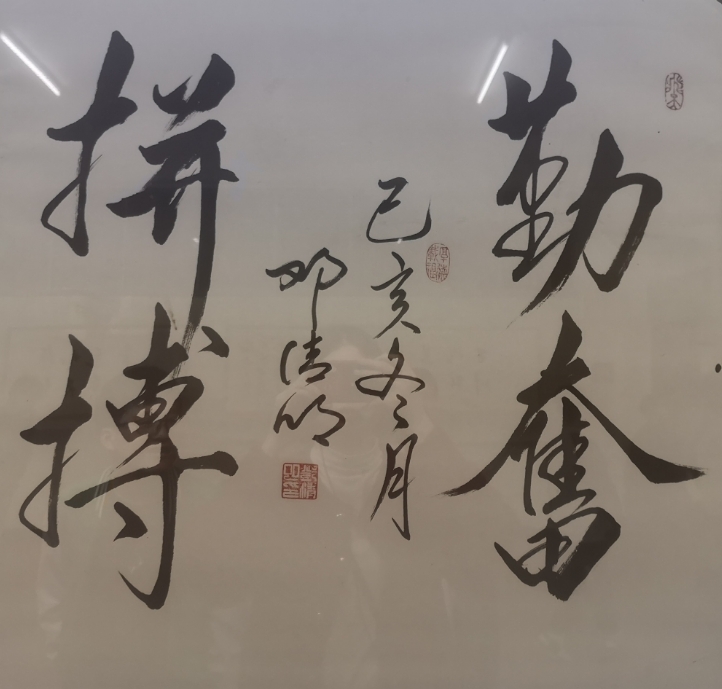 勤奋
拼搏
己亥冬月
邓清明